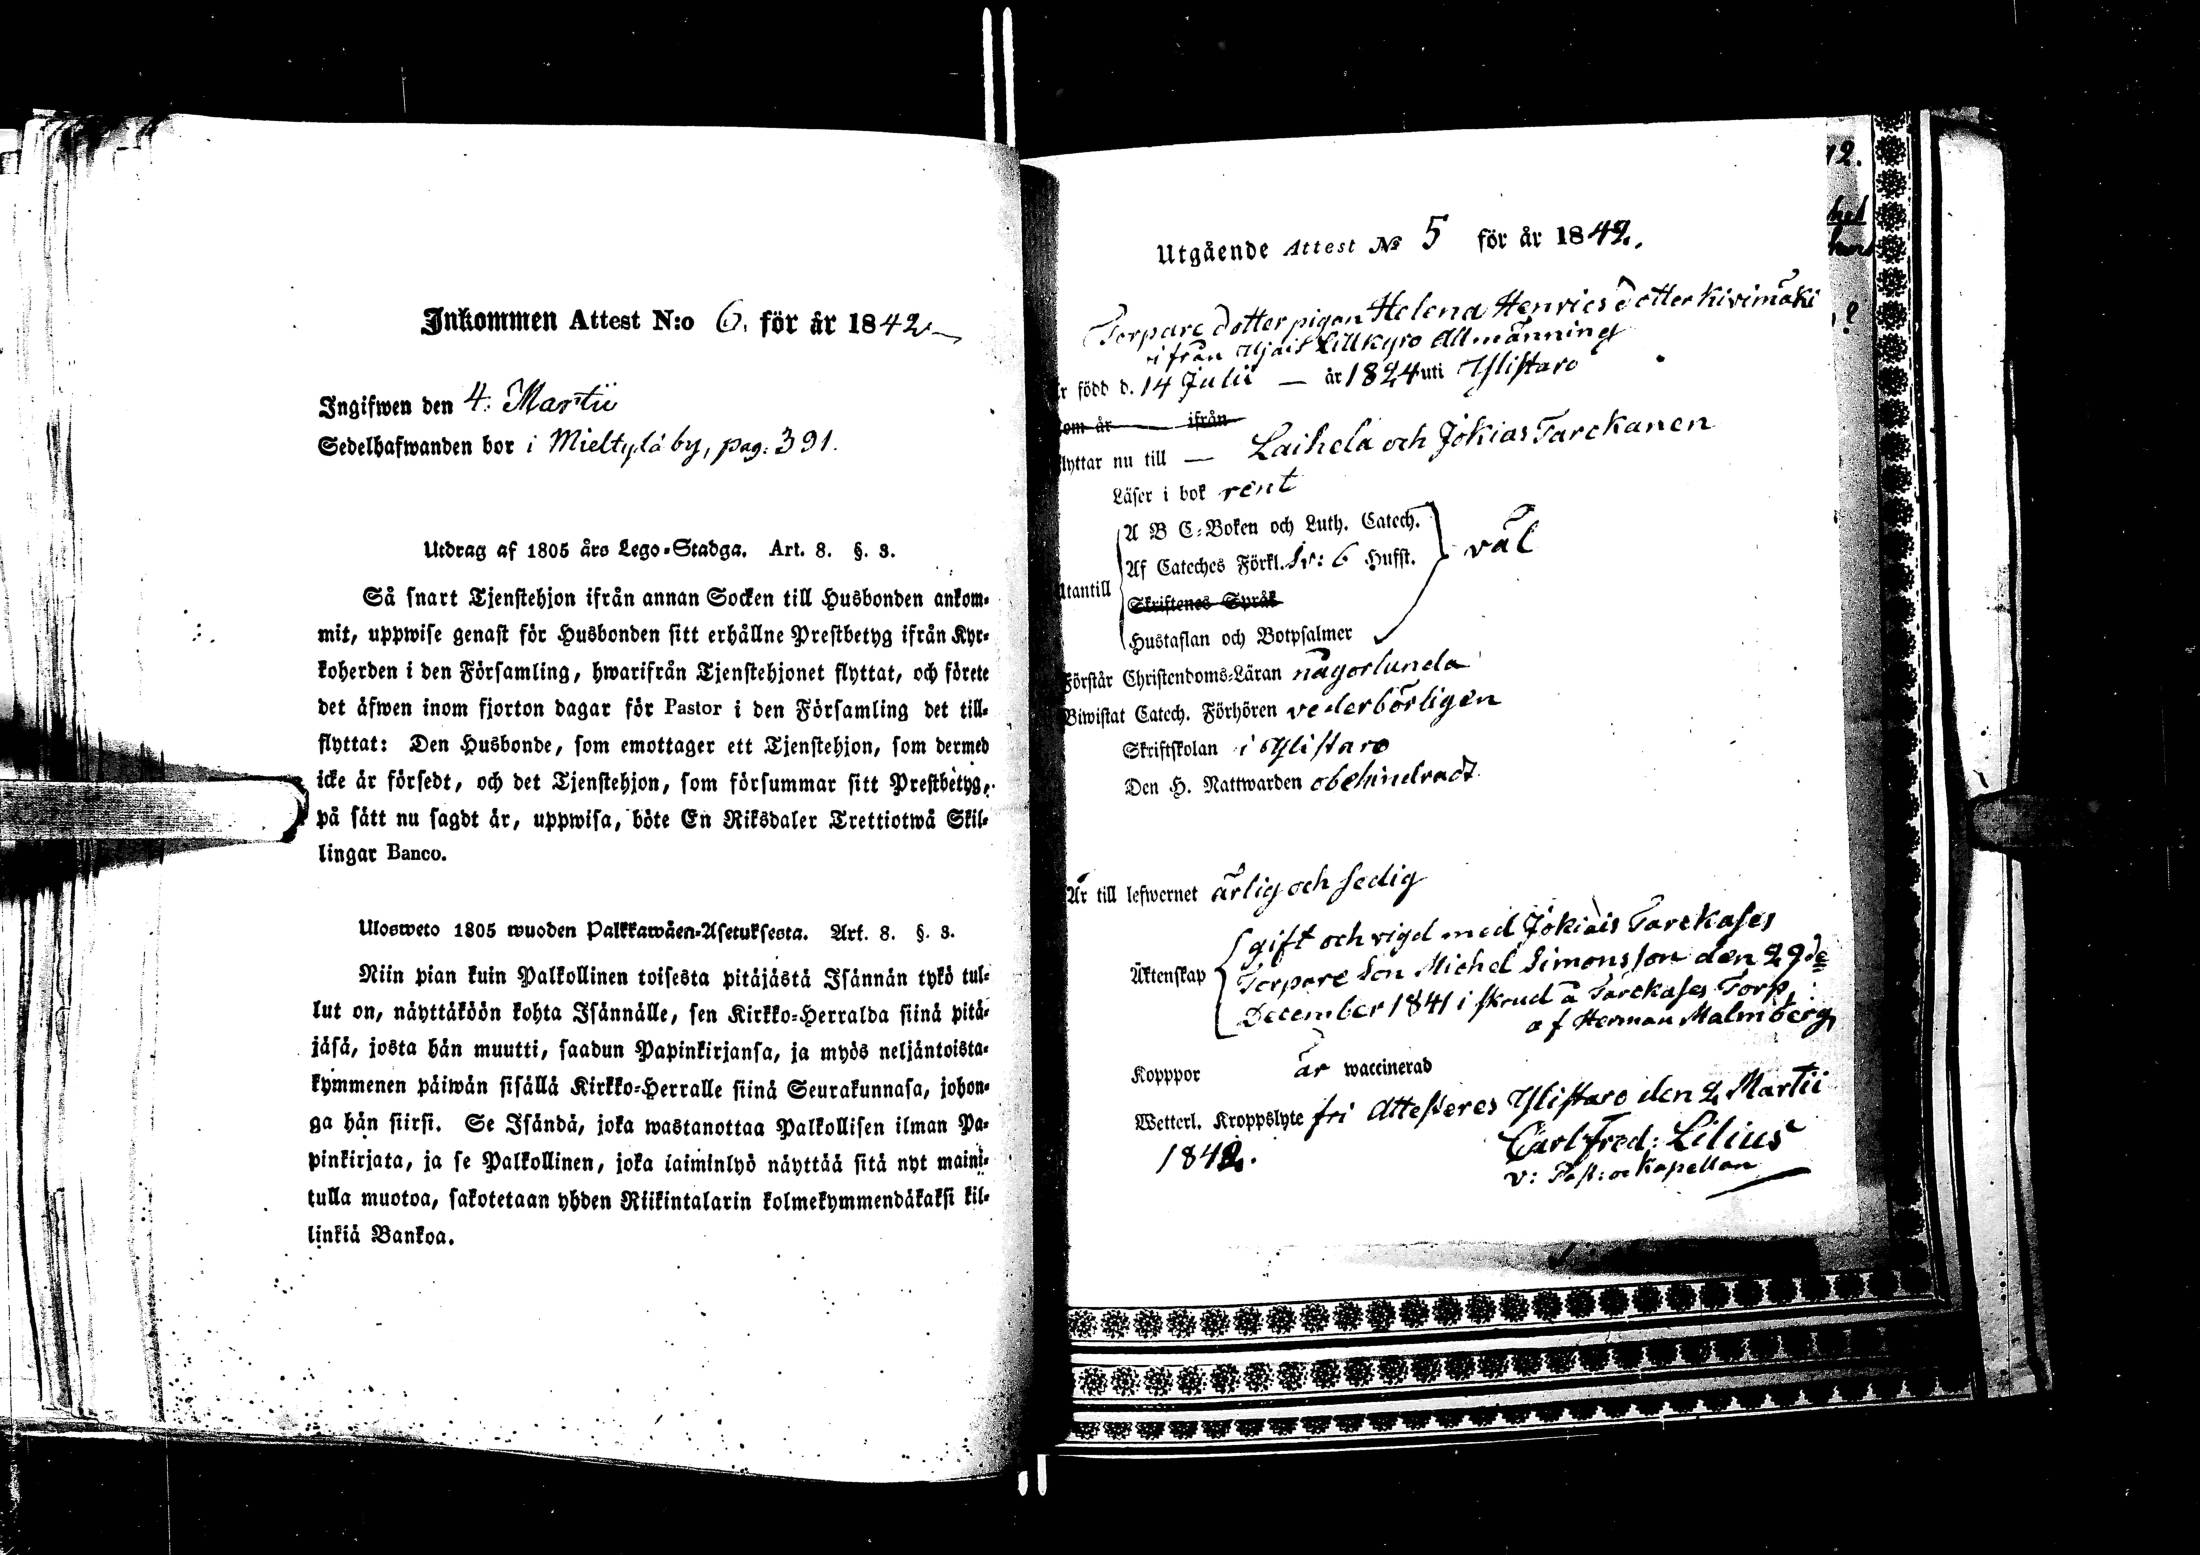 Inkommen Attest N:o 6. för år 1842
Ingifwen den 4. Martii
Sedelhafwanden bor i Mieltylä by, pag: 391.
Utdrag af 1805 års Lego-Stadga. Art. 8. §. 3.
Så snart Tjenstehjon ifrån annan Socken till Husbonden ankom-
mit, uppwise genast för Husbonden sitt erhållne Prestbetyg ifrån Kyr-
koherden i den Församling, hwarifrån Tjenstehjonet flyttat, och förete
det äfwen inom fjorton dagar för Pastor i den Församling det till-
flyttat: Den Husbonde, som emottager ett Tjenstehjon, som dermed
icke är försedt, och det Tjenstehjon, som försummar sitt Prestbetyg,
på sätt nu sagdt är, uppwisa, böte En Riksdaler Trettiotwå Skil-
lingar Banco.
Ulosweto 1805 wuoden Palkkawäen-Asetuksesta. Art. 8. §. 3.
Niin pian kuin Palkollinen toisesta pitäjästä Isännän tykö tul-
lut on, näyttäköön kohta Isännälle, sen Kirkko-Herralda siinä pitä-
jäsä, josta hän muutti, saadun Papinkirjansa, ja myös neljäntoista-
kymmenen päiwän sisällä Kirkko-Herralle siinä Seurakunnasa, johon-
ga hän siirsi. Se Isändä, joka wastanottaa Palkollisen ilman Pa-
pinkirjata, ja se Palkollinen, joka laiminlyö näyttää sitä nyt maini-
tulla muotoa, sakotetaan yhden Riikintalarin kolmekymmendäkaksi kil-
linkiä Bankoa.
Utgående Attest No 5 för år 1842.
Torpare dotter pigan Helena Henricsdotter Kivimäki
ifrån Lillkyro Allmänning
är född d. 14 Julii — år 1824 uti Ylistaro
kom år ifrån
flyttar nu till — Laihela och Jokias Tarckanen
Läser i bok rent
A B C-Boken och Luth. Catech.
Af Cateches Förkl. Sv: 6 Hufst. väl
Utantill
Skriftenes Språk
Hustaflan och Botpsalmer
Förstår Christendoms-Läran någorlunda
Biwistat Catech. Förhören vederbörligen
Skriftskolan i Ylistaro
Den H. Nattwarden obehindradt
Är till lefwernet ärlig och sedig
gift och vigd med Jokiais Tarckases
Äktenskap Torpare Son Michel Simonsson den 29de
December 1841 i skrud å Tarckases Torp,
af Herman Malmberg
Kopppor är waccinerad
Wetterl. Kroppslyte fri Attesteres Ylistaro den 2 Martii
1842. Carl Fred: Lilius
v: Past: o Kapellan